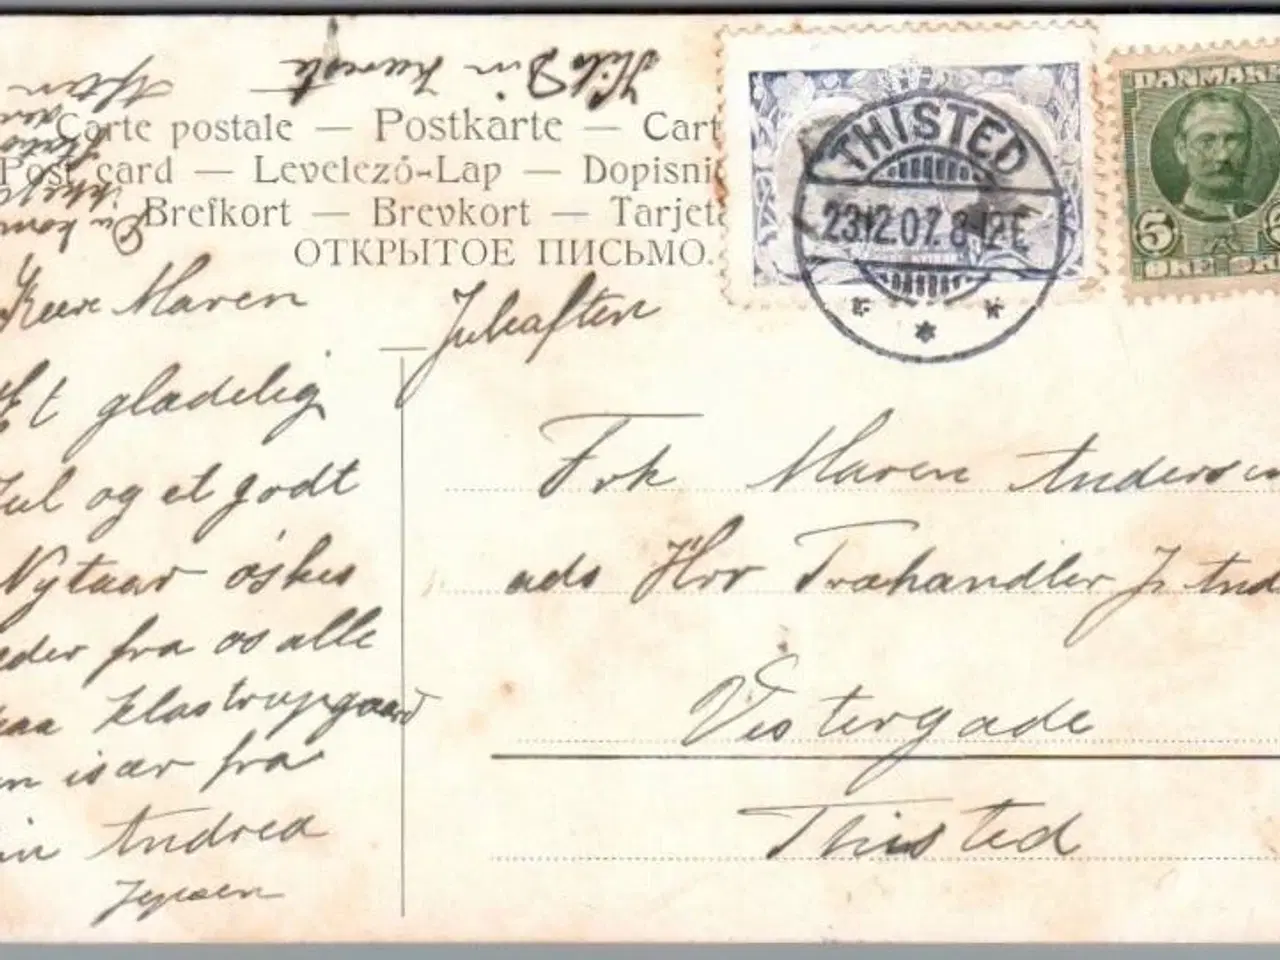 Hils Din Kæreste
Carte postale — Postkarte — Cart
Post card — Levelező-Lap — Dopisni
Brefkort — Brevkort — Tarjeta
ОТКРЫТОЕ ПИСЬМО.
Du kom
ikke
THISTED
23.12.07. 8-12E
DANMARK
5
ØRE ØRE
Kære Maren
Et glædelig
Jul og et godt
Nytaar øskes
eder fra os alle
paa Klostrupgaard
en især fra
in Andrea
Jepsen
Juleaften
Frk Maren Andersen
ads Hrr Træhandler J. And
Vestergade
Thisted